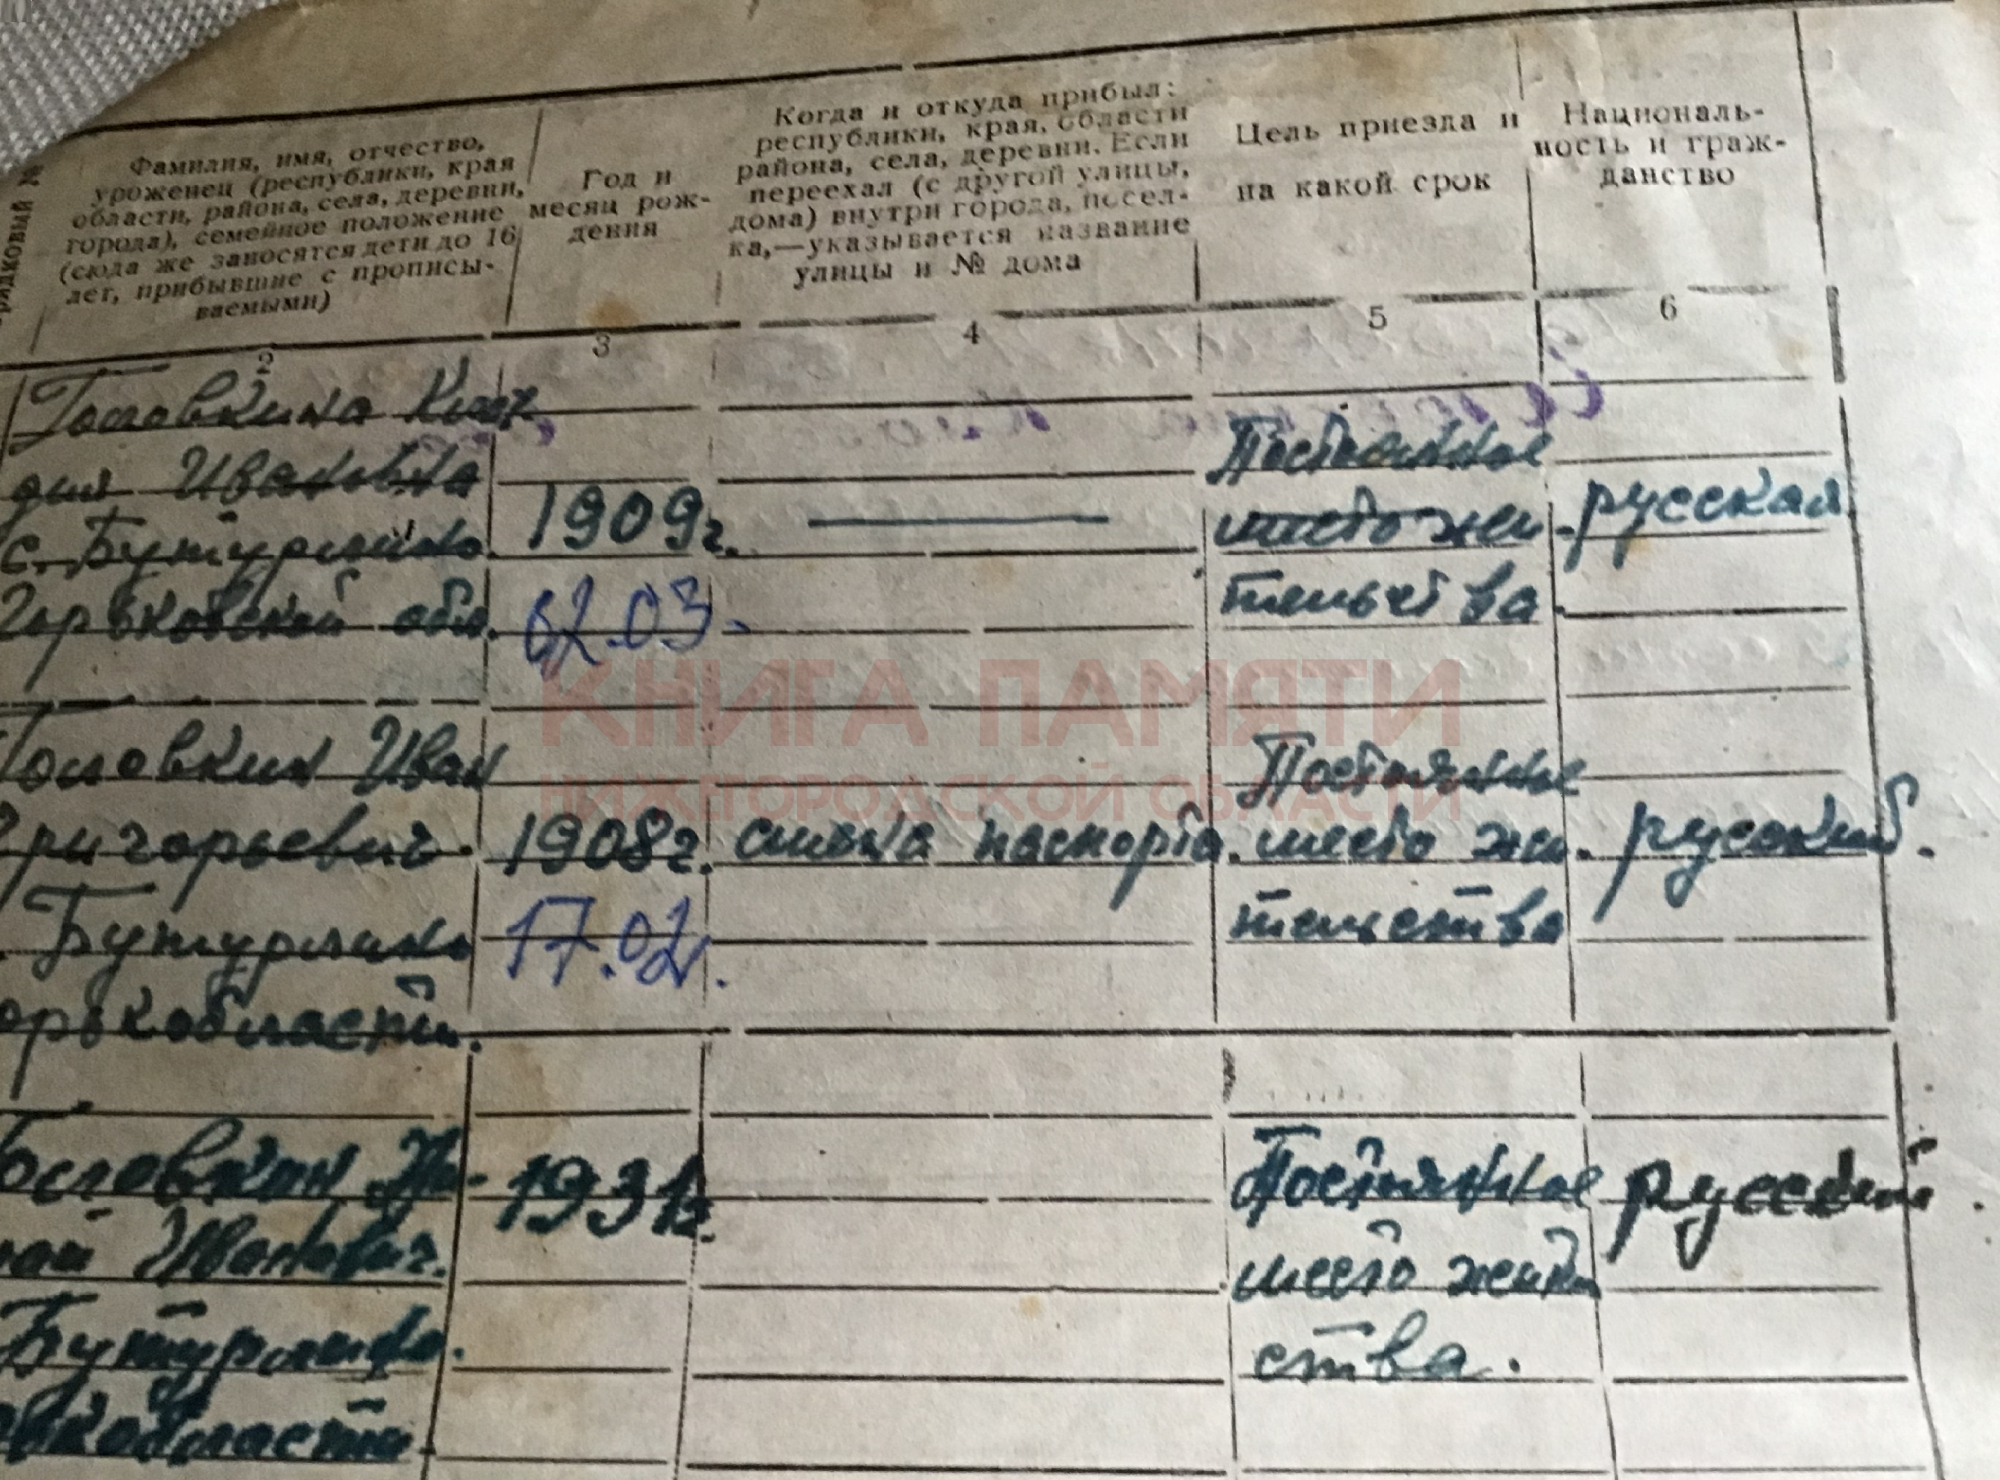 Фамилия, имя, отчество,
уроженец (республики, края
области, района, села, деревни,
города), семейное положение
(сюда же заносятся дети до 16
лет, прибывшие с прописы-
ваемыми)
Год и
месяц рож-
дения
Когда и откуда прибыл:
республики, края, области
района, села, деревни. Если
переехал (с другой улицы,
дома) внутри города, посел-
ка,—указывается название
улицы и № дома
Цель приезда и
на какой срок
Националь-
ность и граж-
данство
2
3
4
5
6
Головкина Клав
дия Ивановна
с. Бутурлино
Горьковской обл.
1909г.
02.03.
Постоянное
место жи-
тельства
русская
Головкин Иван
Григорьевич
Бутурлино
орькобласти.
1908г.
17.02.
смена паспорта.
Постоянное
место жи-
тельства
русский.
Головкин
Иванович.
Бутурлино.
кобласти.
1931г.
Постоянное
место жит
ства.
русский.
КНИГА ПАМЯТИ
НИЖЕГОРОДСКОЙ ОБЛАСТИ